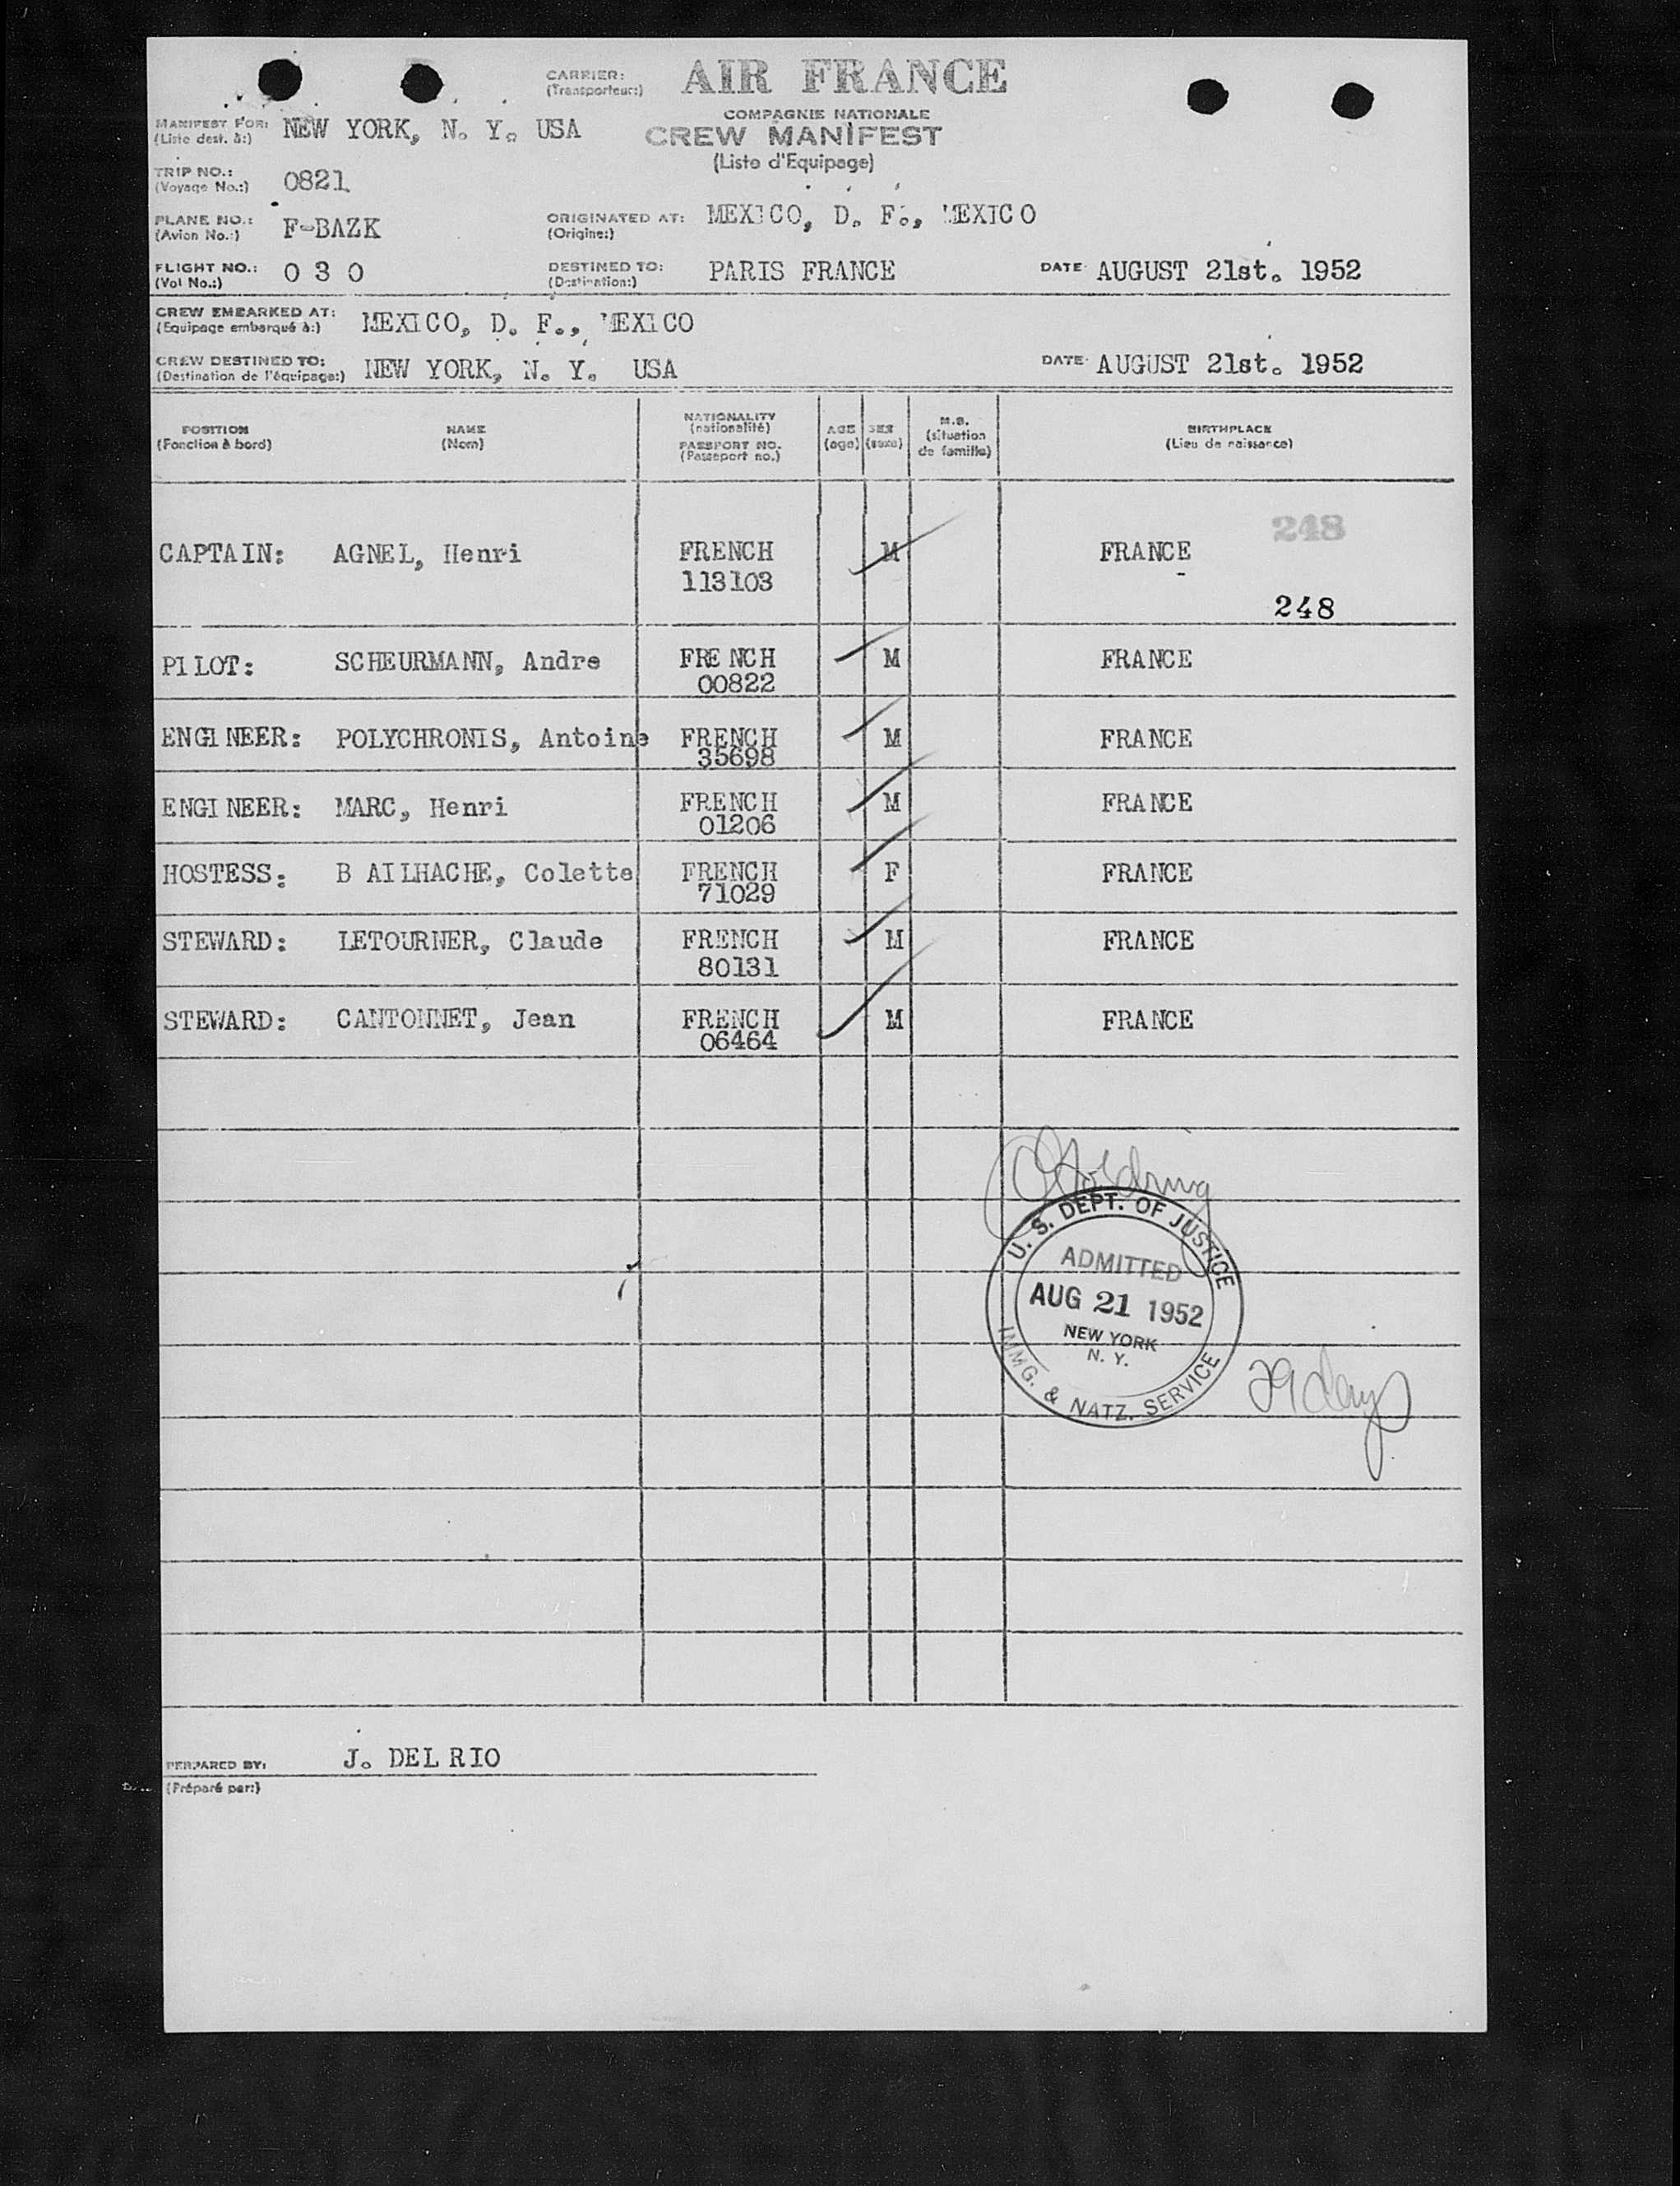 CARRIER: AIR FRANCE
(Transporteur:)
COMPAGNIE NATIONALE
MANIFEST FOR: NEW YORK, N. Y. USA
(Liste dest. à:)
CREW MANIFEST
(Liste d'Equipage)
TRIP NO.: 0821
(Voyage No.:)
PLANE NO.: F-BAZK
(Avion No.:)
ORIGINATED AT: MEXICO, D. F., MEXICO
(Origine:)
FLIGHT NO.: 0 3 0
(Vol No.:)
DESTINED TO: PARIS FRANCE
(Destination:)
DATE: AUGUST 21st. 1952
CREW EMBARKED AT: MEXICO, D. F., MEXICO
(Equipage embarqué à:)
CREW DESTINED TO: NEW YORK, N. Y. USA
(Destination de l'équipage:)
DATE: AUGUST 21st. 1952
POSITION NAME NATIONALITY AGE SEX M.S. BIRTHPLACE
(Fonction à bord) (Nom) (nationalité) (age) (sexe) (situation de famille) (Lieu de naissance)
PASSPORT NO.
(Passeport no.)
248
CAPTAIN: AGNEL, Henri FRENCH M FRANCE
113103
248
PILOT: SCHEURMANN, Andre FRENCH M FRANCE
00822
ENGINEER: POLYCHRONIS, Antoine FRENCH M FRANCE
35698
ENGINEER: MARC, Henri FRENCH M FRANCE
01206
HOSTESS: BAILHACHE, Colette FRENCH F FRANCE
71029
STEWARD: LETOURNER, Claude FRENCH M FRANCE
80131
STEWARD: CANTONNET, Jean FRENCH M FRANCE
06464
U. S. DEPT. OF JUSTICE
ADMITTED
AUG 21 1952
NEW YORK
N. Y.
IMMG. & NATZ. SERVICE
29 days
PREPARED BY: J. DEL RIO
(Préparé par:)